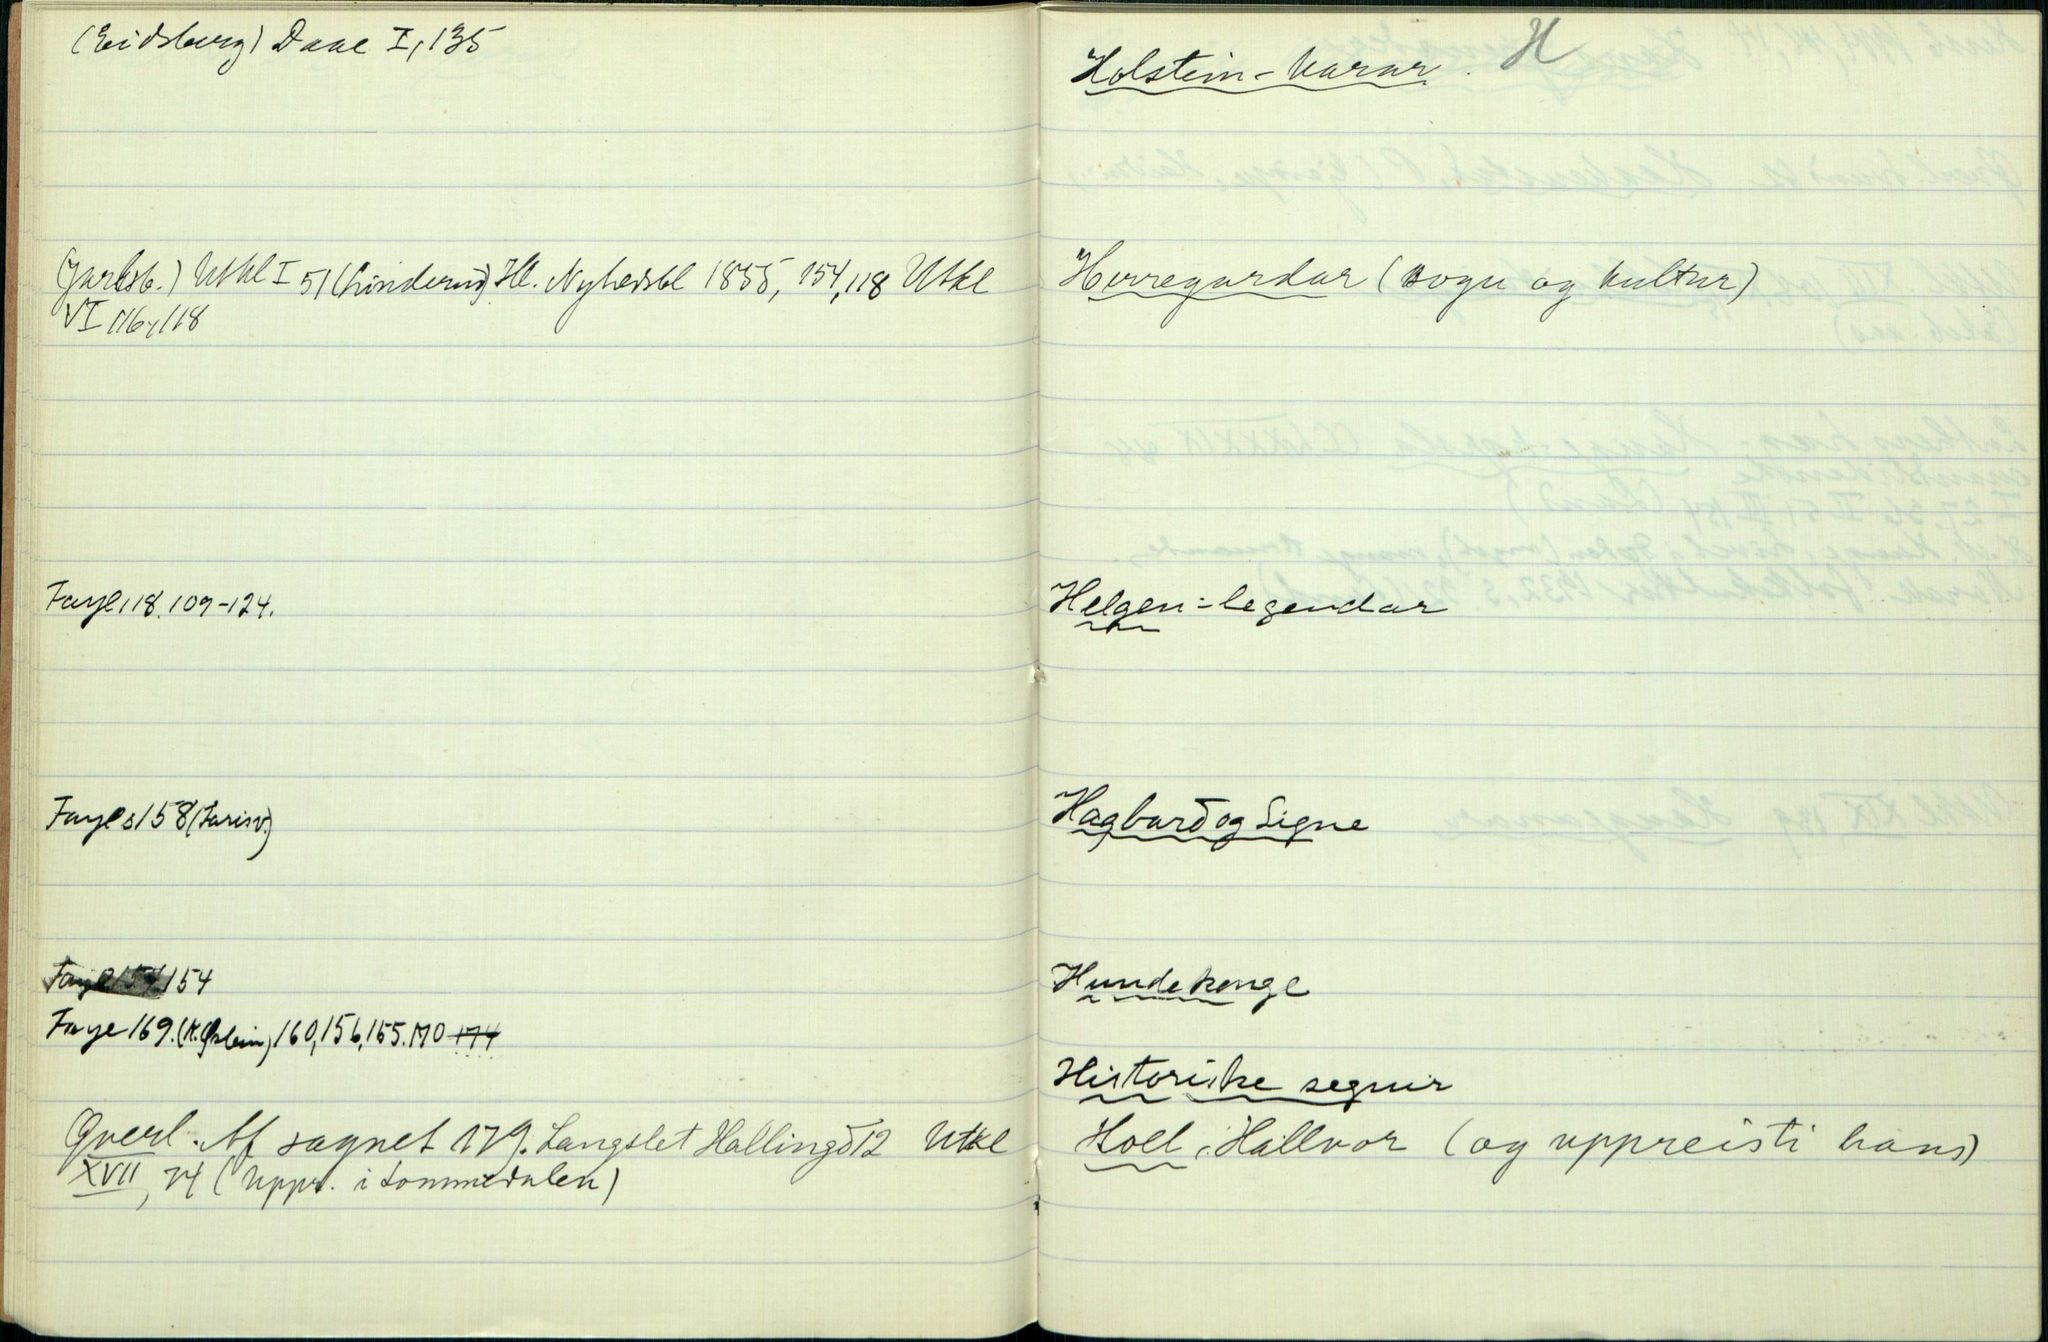 (Eidsberg) Daae I, 135
(Jarlsb.) Utkl I 51 (Linderud) Ill. Nyhedsbl 1855, 154, 118 Utkl
VI 116, 118
Faye 118. 109-124.
Faye s 158 (Larisv.)
Faye 154 154
Faye 169. (K. Øistein) 160, 156, 155. 170 174
Qverl. Af sagnet 179. Langslet Hallingd 12 Utkl
XVII, 74 (uppr. i Lommedalen)
H
Holstein-karar.
Herregardar (sogu og kultur)
Helgen-legendar
Hagbard og Signe
Hundekonge
Historiske segner
Hoel, Hallvor (og uppreisti hans)